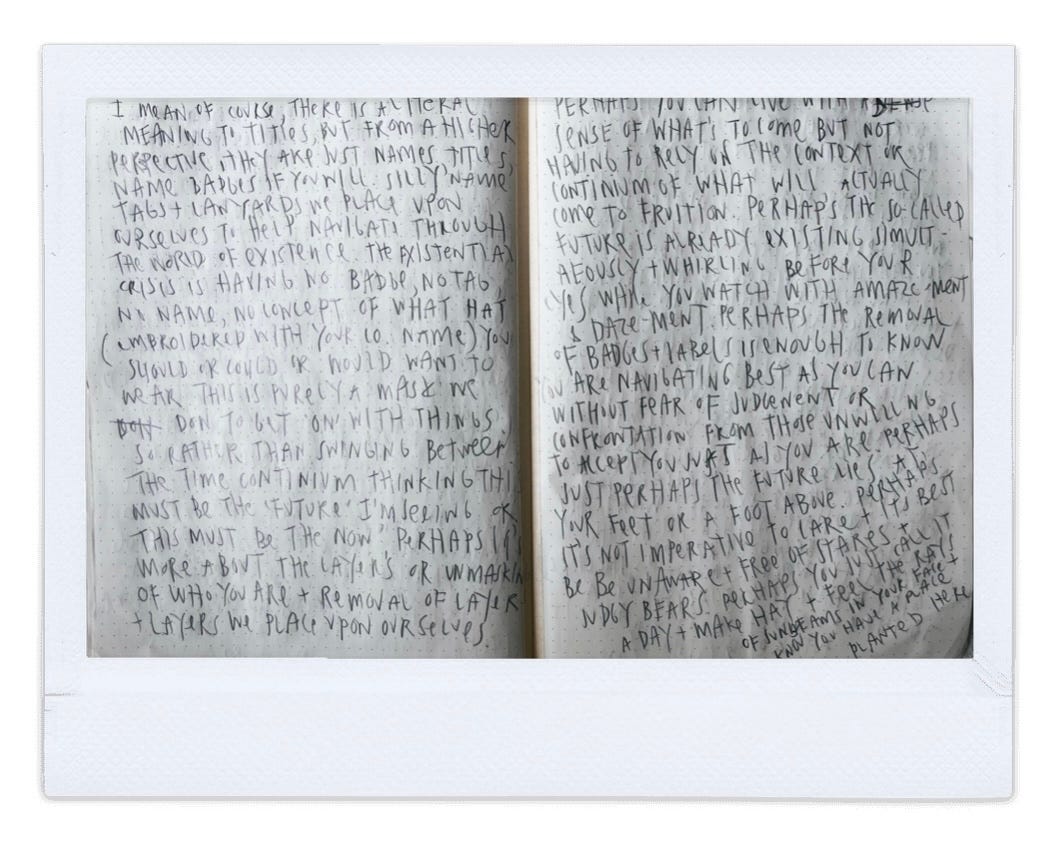 I MEAN OF COURSE, THERE IS A LITERAL
MEANING TO TITLES, BUT FROM A HIGHER
PERSPECTIVE, THEY ARE JUST NAMES, TITLES,
NAME BADGES IF YOU WILL SILLY NAME
TAGS + LANYARDS WE PLACE UPON
OURSELVES TO HELP NAVIGATE THROUGH
THE WORLD OF EXISTENCE. THE EXISTENTIAL
CRISIS IS HAVING NO BADGE, NO TAG
NO NAME, NO CONCEPT OF WHAT HAT
(EMBROIDERED WITH YOUR CO. NAME) YOU
SHOULD OR COULD OR WOULD WANT TO
WEAR. THIS IS PURELY A MASK WE
DON TO GET ON WITH THINGS
SO RATHER THAN SWINGING BETWEEN
THE TIME CONTINIUM THINKING THIS
MUST BE THE 'FUTURE' I'M SEEING OR
THIS MUST BE THE NOW" PERHAPS IT'S
MORE ABOUT THE LAYER'S OR UNMASKIN
OF WHO YOU ARE + REMOVAL OF LAYER
+ LAYERS WE PLACE UPON OURSELVES.
PERHAPS YOU CAN LIVE WITH A
SENSE OF WHAT'S TO COME BUT NOT
HAVING TO RELY ON THE CONTEXT OR
CONTINIUM OF WHAT WILL ACTUALLY
COME TO FRUITION. PERHAPS THE SO-CALLED
FUTURE IS ALREADY EXISTING SIMULT-
AEOUSLY + WHIRLING BEFORE YOUR
EYES WHILE YOU WATCH WITH AMAZE-MENT
& DAZE-MENT PERHAPS THE REMOVAL
OF BADGES + LABELS IS ENOUGH TO KNOW
YOU ARE NAVIGATING BEST AS YOU CAN
WITHOUT FEAR OF JUDGEMENT OR
CONFRONTATION FROM THOSE UNWILLING
TO ACCEPT YOU JUST AS YOU ARE. PERHAPS
JUST PERHAPS THE FUTURE LIES AT
YOUR FEET OR A FOOT ABOVE. PERHAPS
IT'S NOT IMPERATIVE TO CARE + IT'S BEST
BE BE UNAWARE + FREE OF STARES +
JUDGY BEARS. PERHAPS YOU JUST CALL IT
A DAY + MAKE HAY + FEEL THE RAYS
OF SUNBEAMS IN YOUR FACE +
KNOW YOU HAVE A PLACE
PLANTED HERE